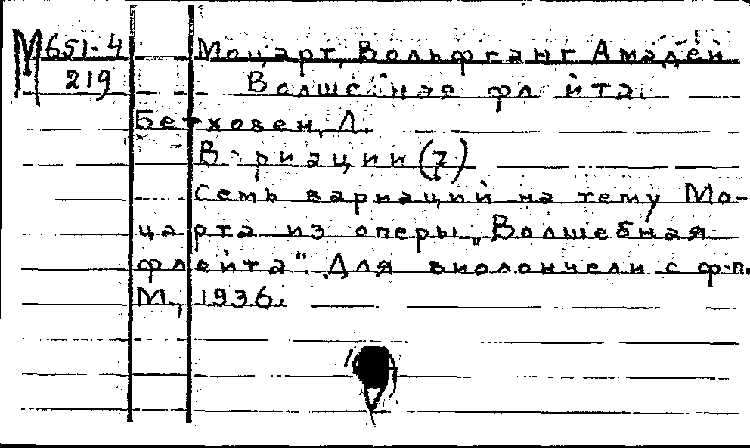 М 651-4
219
Моцарт, Вольфганг Амадей
Волшебная флейта.
Бетховен, Л.
Вариации (7)
Семь вариаций на тему Мо-
царта из оперы „Волшебная
флейта". Для виолончели с ф-п.
М., 1936.